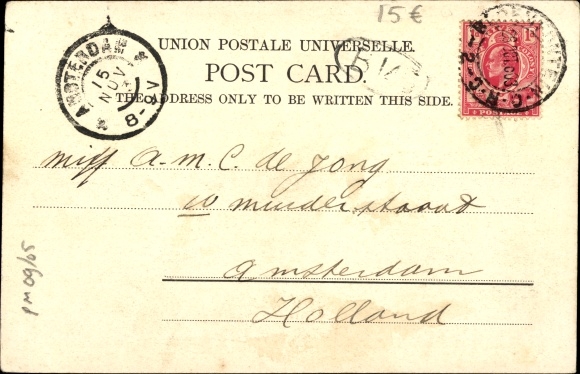 15 €
UNION POSTALE UNIVERSELLE.
POST CARD.
THE ADDRESS ONLY TO BE WRITTEN THIS SIDE.
AMSTERDAM
15
NOV
8-9V
POSTAGE
Miss A. M. C. de Jong
Amsterdam
Holland
PM 09/05